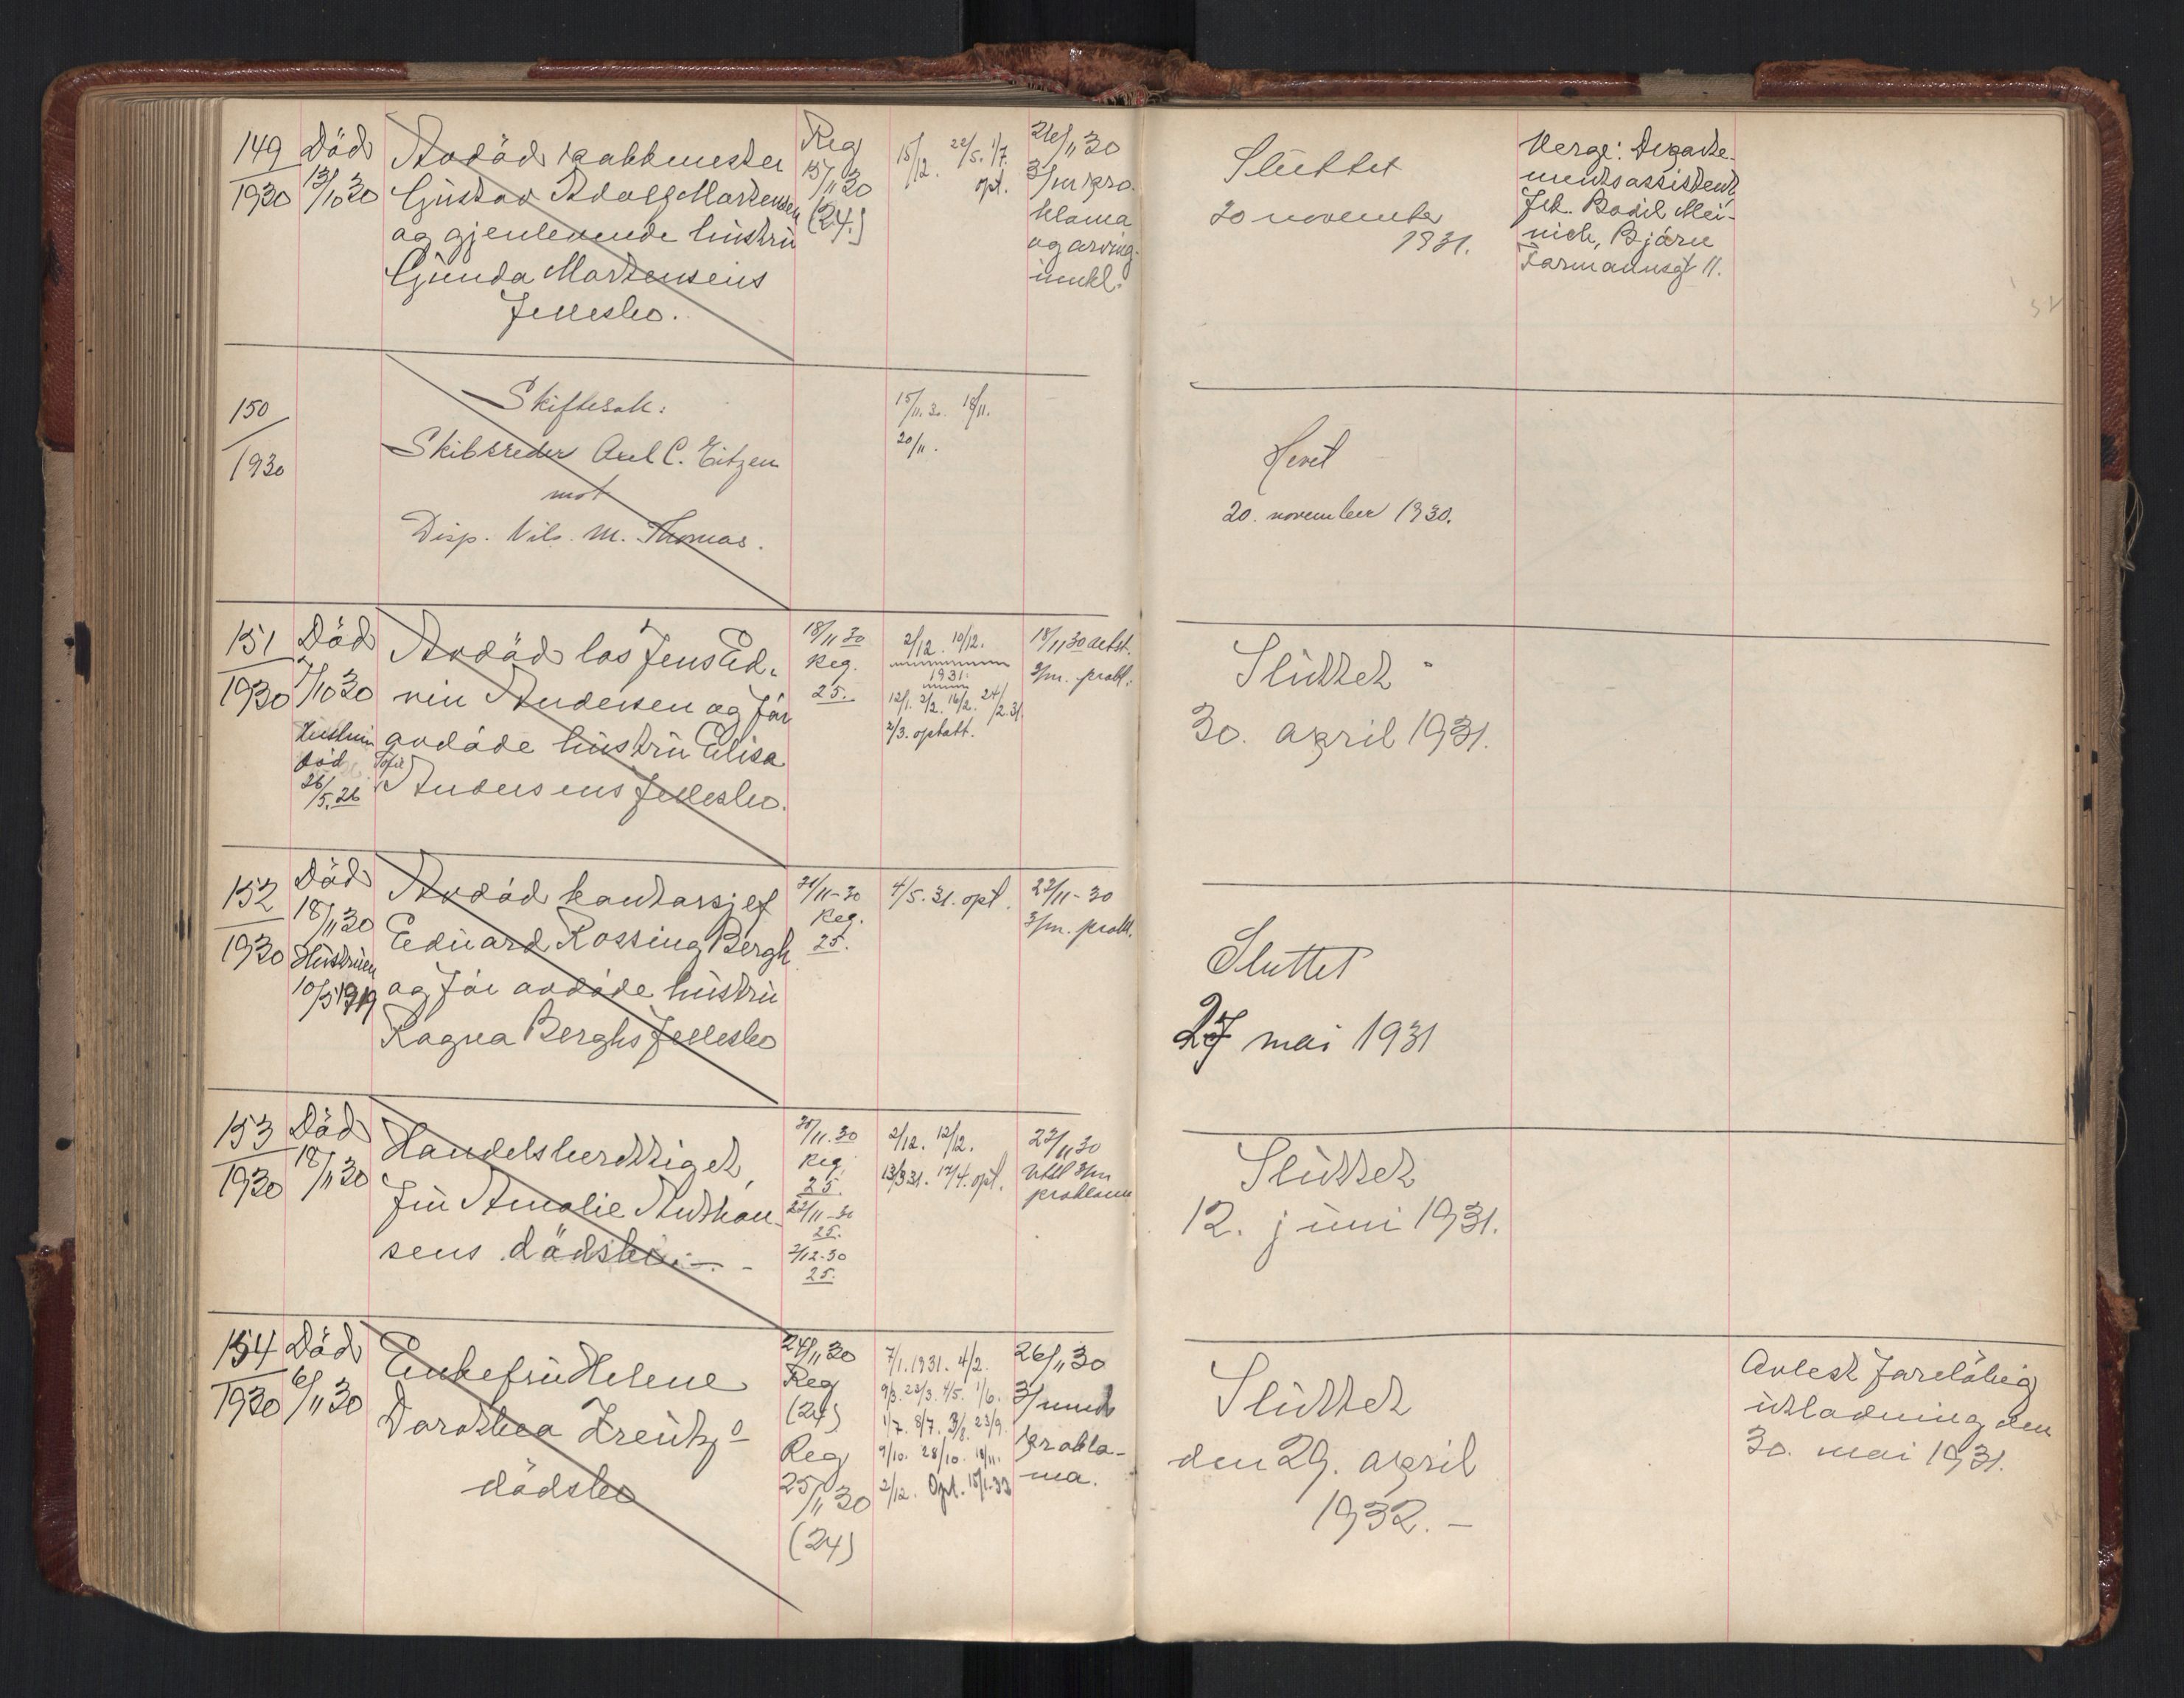 149
1930
Död
13/10 30
Avdöd pakkmester
Gustav Adolf Martensen
og gjenlevende hustru
Gunda Martensens
fellesbo.
Reg
15/11 30
(24.)
15/12. 22/5. 1/7.
opt.
26/11 30
3/m pro-
klama
og arving-
innkl.
Sluttet
20 november
1931.
Verge: Departe-
mentsassistent
frk. Bodil Mei-
nich, Bjarne
Farmannsgt 11.
150
1930
Skiftesak:
Skibsreder Axel C. Eitzen
mot
Disp. Nils. M. Thomas.
15/11.30. 18/11.
20/11.
Hevet
20. november 1930.
151
1930
Död
7/10 30
Hustruen
död
26/5.26
Avdöd los Jens Ed-
vin Andersen og for
avdöde hustru Elisa
Sofie
Andersens fellesbo.
18/11 30
Reg.
25.
2/12. 10/12.
1931:
12/1. 2/2. 16/2. 24/2.31.
2/3. opkatt.
18/11 30 utst.
3/m. prokl.
Sluttet
30. april 1931.
152
1930
Död
18/11 30
Hustruen
10/5 1919
Avdöd kontorsjef
Eduard Rossing Bergh
og for avdöde hustru
Ragna Berghs fellesbo
21/11-30
Reg.
25.
4/5.31. opt.
22/11-30
3/m. prokl.
Sluttet
27 mai 1931
153
1930
Död
18/11 30
Handelsberettiget,
fru Amalie Anthon-
sens dödsbo.-
20/11.30
Reg.
25.
22/11-30
25.
2/12-30
25.
2/12. 12/12.
13/3 31. 17/4. opt.
22/11 30
Utst 3/m
proklama
Sluttet
12. juni 1931.
154
1930
Död
6/11 30
Enkefru Helene
Dorothea Kreutz's
dödsbo
24/11 30
Reg
(24)
Reg
25/11 30
(24)
7/1.1931. 4/2.
9/3. 23/3. 4/5. 1/6.
1/7. 8/7. 3/8. 23/9.
9/10. 28/10. 18/11.
2/12. Opt. 15/1-33
26/11 30
3/mnds
prokla-
ma.
Sluttet
den 29. april
1932.-
Avlest foreløbig
utlodning den
30. mai 1931.